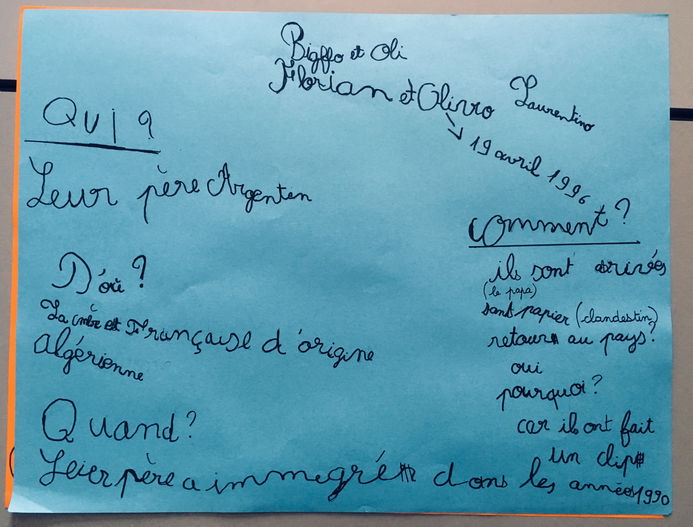 Bigflo et Oli
Florian et Olivio Laurentino
↘ 19 avril 1996
Qui ?
Leur père Argenten
D'où ?
La mère est Française d'origine
algérienne
Quand ?
Leur père a immegré dans les années 1990
comment ?
ils sont arrivés
(le papa)
sans papier (clandestin)
retour au pays ?
oui
pourquoi ?
car ils ont fait
un clip